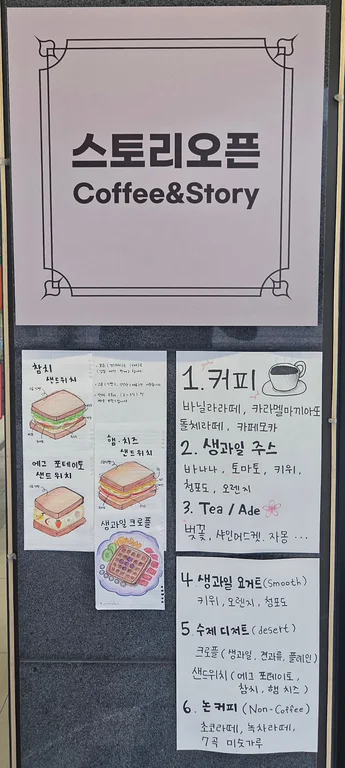 스토리오픈
Coffee&Story
참치
샌드위치
햄·치즈
샌드위치
에그 포테이토
샌드위치
생과일 크로플
1. 커피
바닐라라떼, 카라멜마끼아또
돌체라떼, 카페모카
2. 생과일 주스
바나나, 토마토, 키위,
청포도, 오렌지
3. Tea / Ade
벚꽃, 샤인머스켓, 자몽 ...
4 생과일 요거트 (Smooth)
키위, 오렌지, 청포도
5. 수제 디저트 (desert)
크로플 ( 생과일, 견과류, 플레인 )
샌드위치 ( 에그 포테이토,
참치, 햄 치즈 )
6. 논커피 (Non-Coffee)
초코라떼, 녹차라떼,
7곡 미숫가루